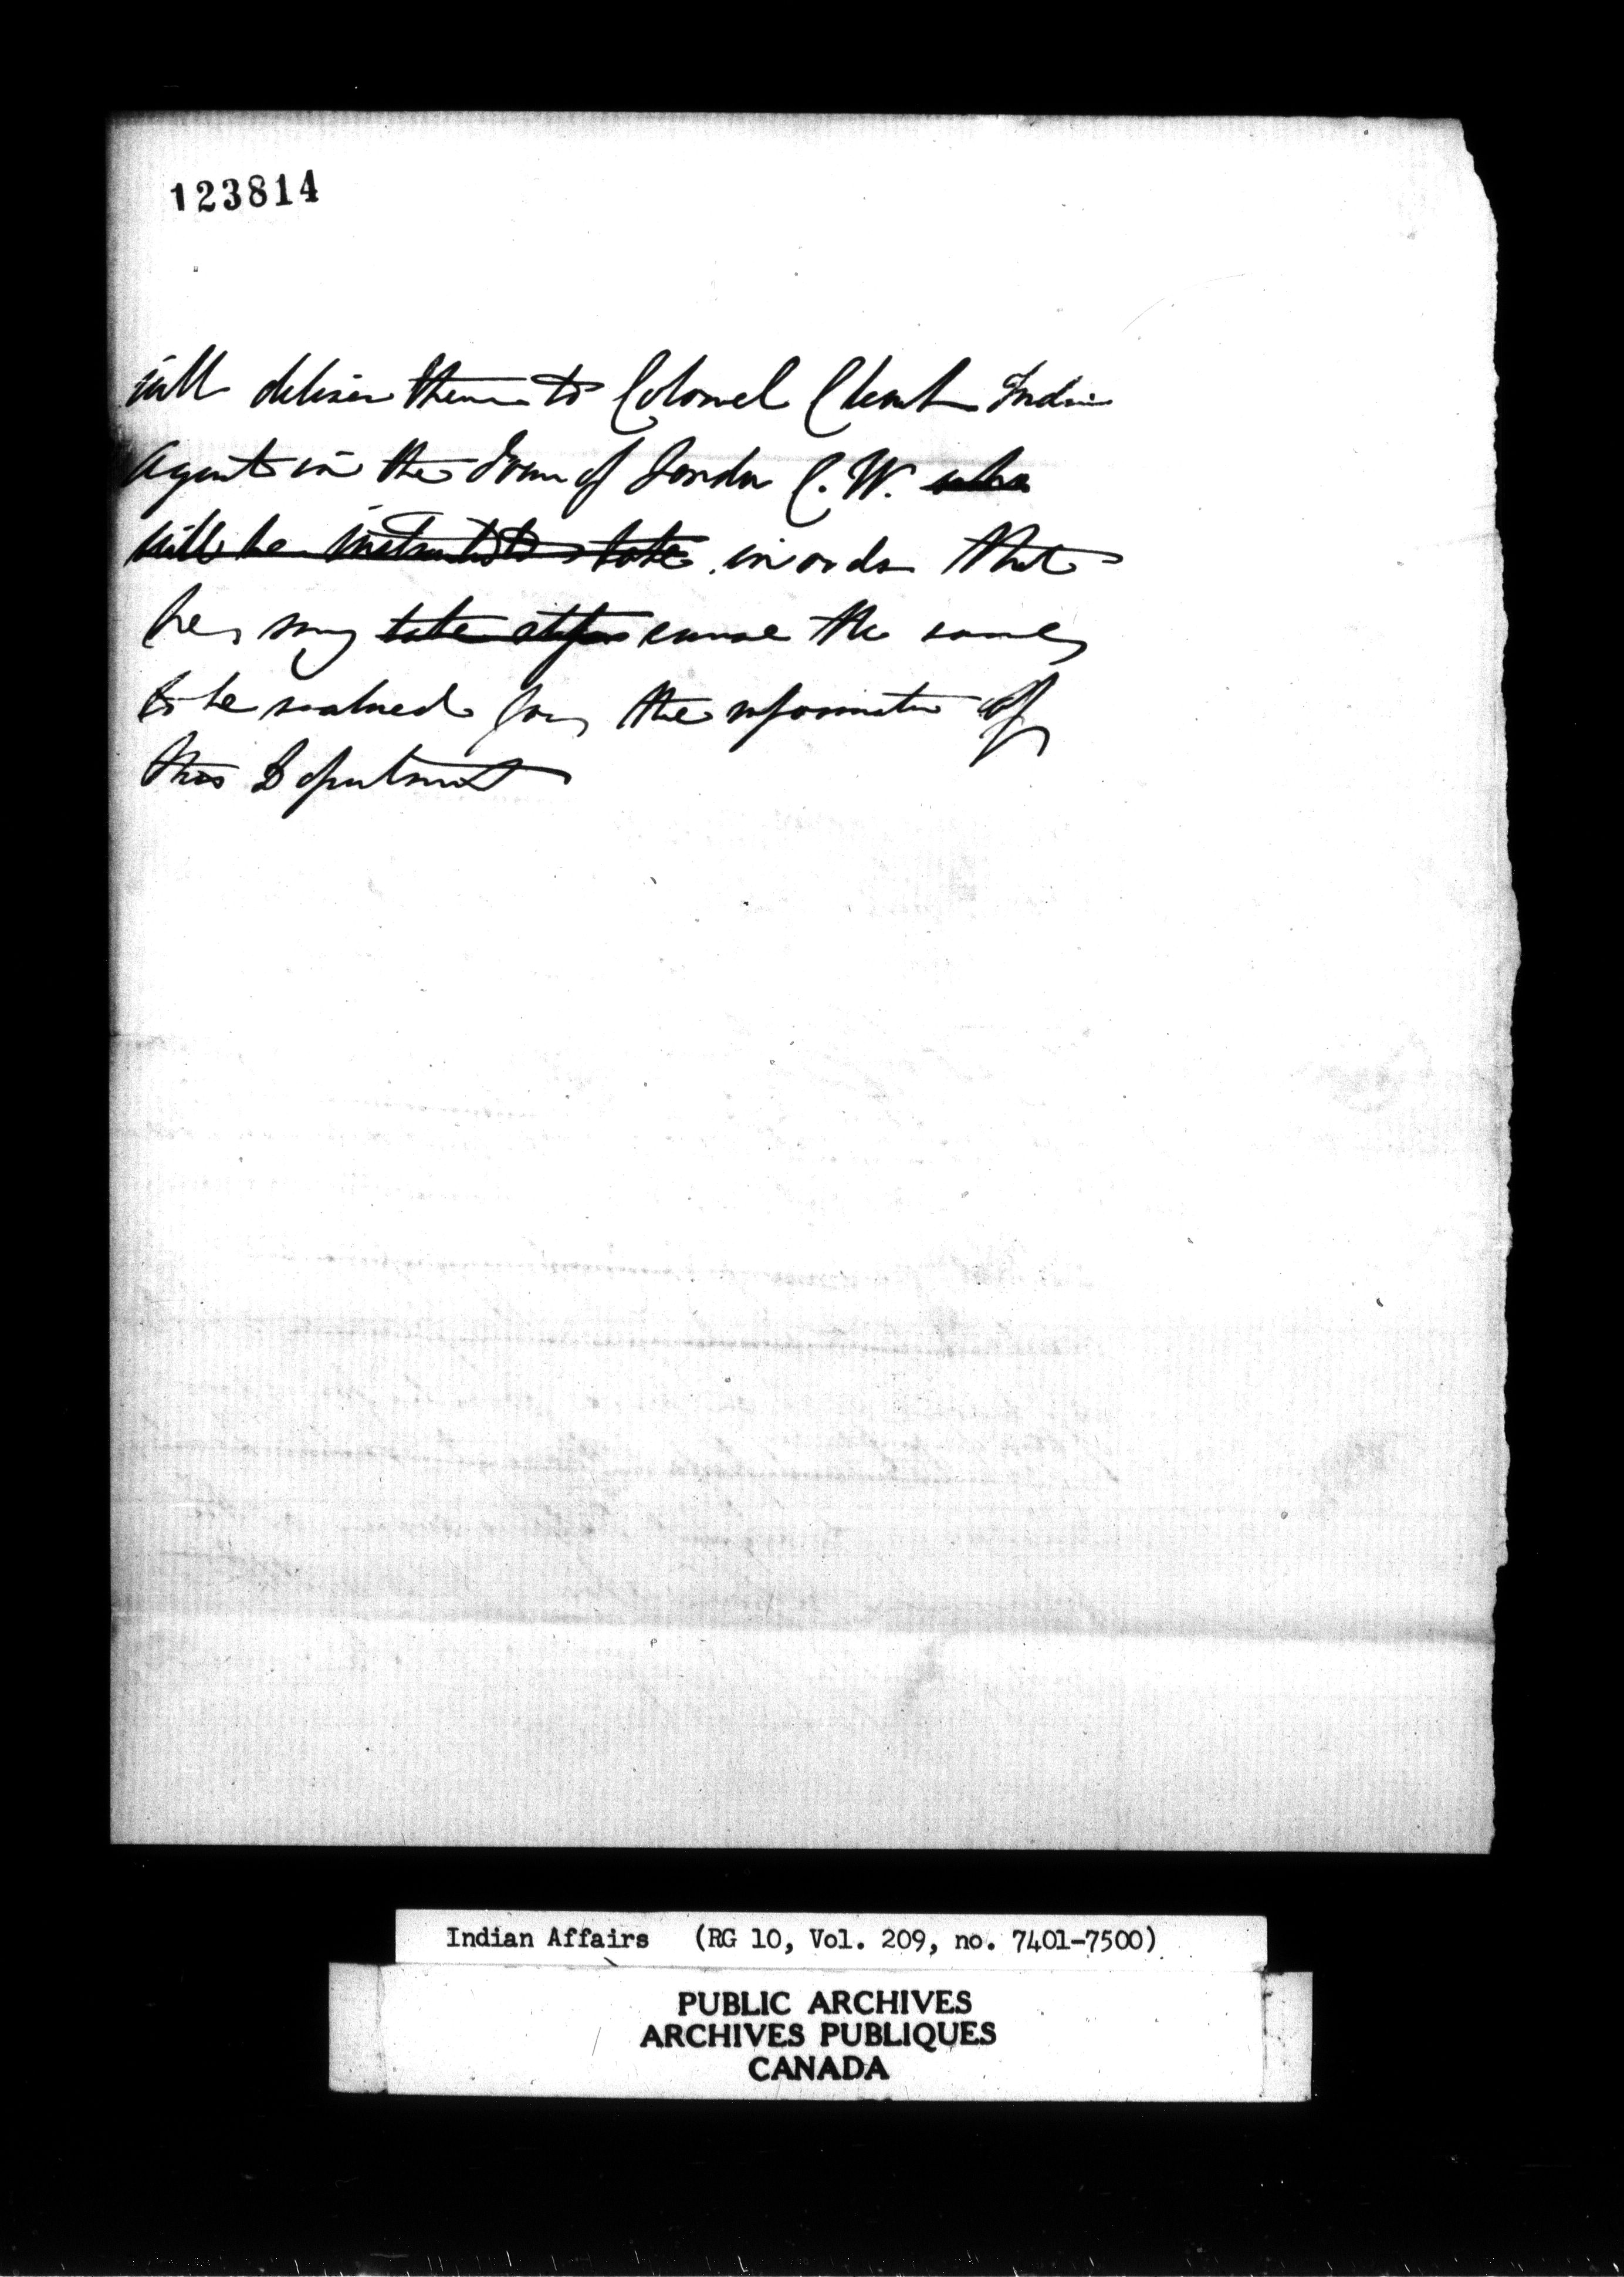 123814
will deliver them to Colonel Clench Indian
Agent in the Town of London C. W. who
will be instructed to take in order that
he may take steps cause the same
to be valued for the information of
this Department
Indian Affairs (RG 10, Vol. 209, no. 7401-7500)
PUBLIC ARCHIVES
ARCHIVES PUBLIQUES
CANADA